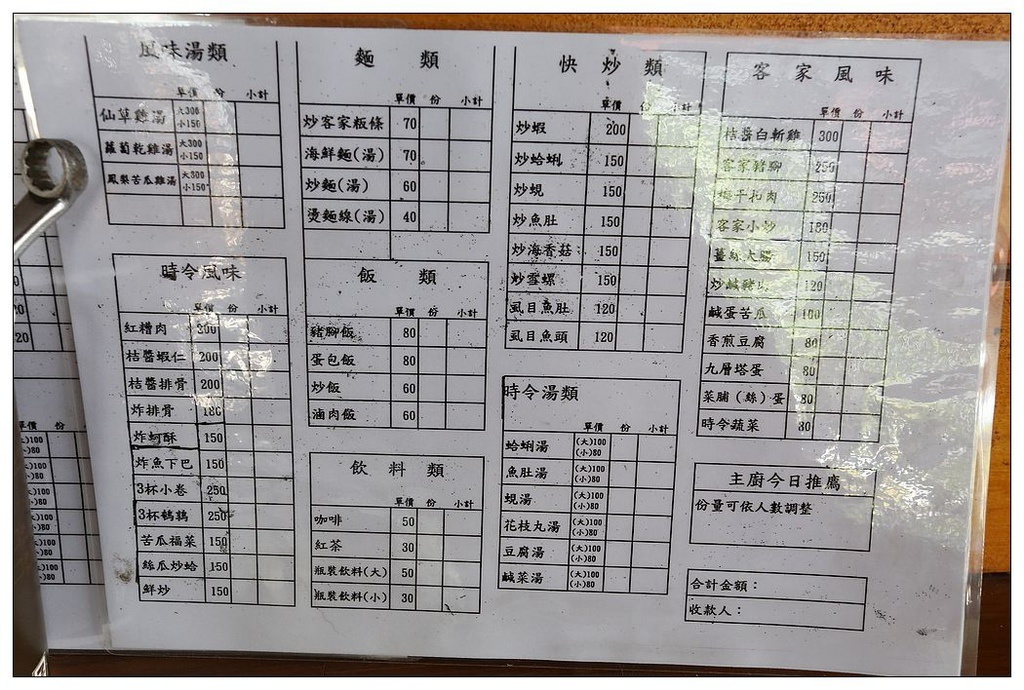 風味湯類
單價 份 小計
仙草雞湯 大300 小150
蘿蔔乾雞湯 大300 小150
鳳梨苦瓜雞湯 大300 小150
時令風味
單價 份 小計
紅糟肉 300
桔醬蝦仁 200
桔醬排骨 200
炸排骨 180
炸蚵酥 150
炸魚下巴 150
3杯小卷 250
3杯鵪鶉 250
苦瓜福菜 150
絲瓜炒蛤 150
鮮炒 150
麵 類
單價 份 小計
炒客家粄條 70
海鮮麵(湯) 70
炒麵(湯) 60
燙麵線(湯) 40
飯 類
單價 份 小計
豬腳飯 80
蛋包飯 80
炒飯 60
滷肉飯 60
飲 料 類
單價 份 小計
咖啡 50
紅茶 30
瓶裝飲料(大) 50
瓶裝飲料(小) 30
快 炒 類
單價 份 小計
炒蝦 200
炒蛤蜊 150
炒蜆 150
炒魚肚 150
炒海香菇 150
炒雪螺 150
虱目魚肚 120
虱目魚頭 120
時令湯類
單價 份 小計
蛤蜊湯 (大)100 (小)80
魚肚湯 (大)100 (小)80
蜆湯 (大)100 (小)80
花枝丸湯 (大)100 (小)80
豆腐湯 (大)100 (小)80
鹹菜湯 (大)100 (小)80
客 家 風 味
單價 份 小計
桔醬白斬雞 300
客家豬腳 250
梅干扣肉 250
客家小炒 180
薑絲大腸 150
炒鹹豬肉 120
鹹蛋苦瓜 100
香煎豆腐 80
九層塔蛋 80
菜脯(絲)蛋 80
時令蔬菜 80
主廚今日推薦
份量可依人數調整
合計金額：
收款人：